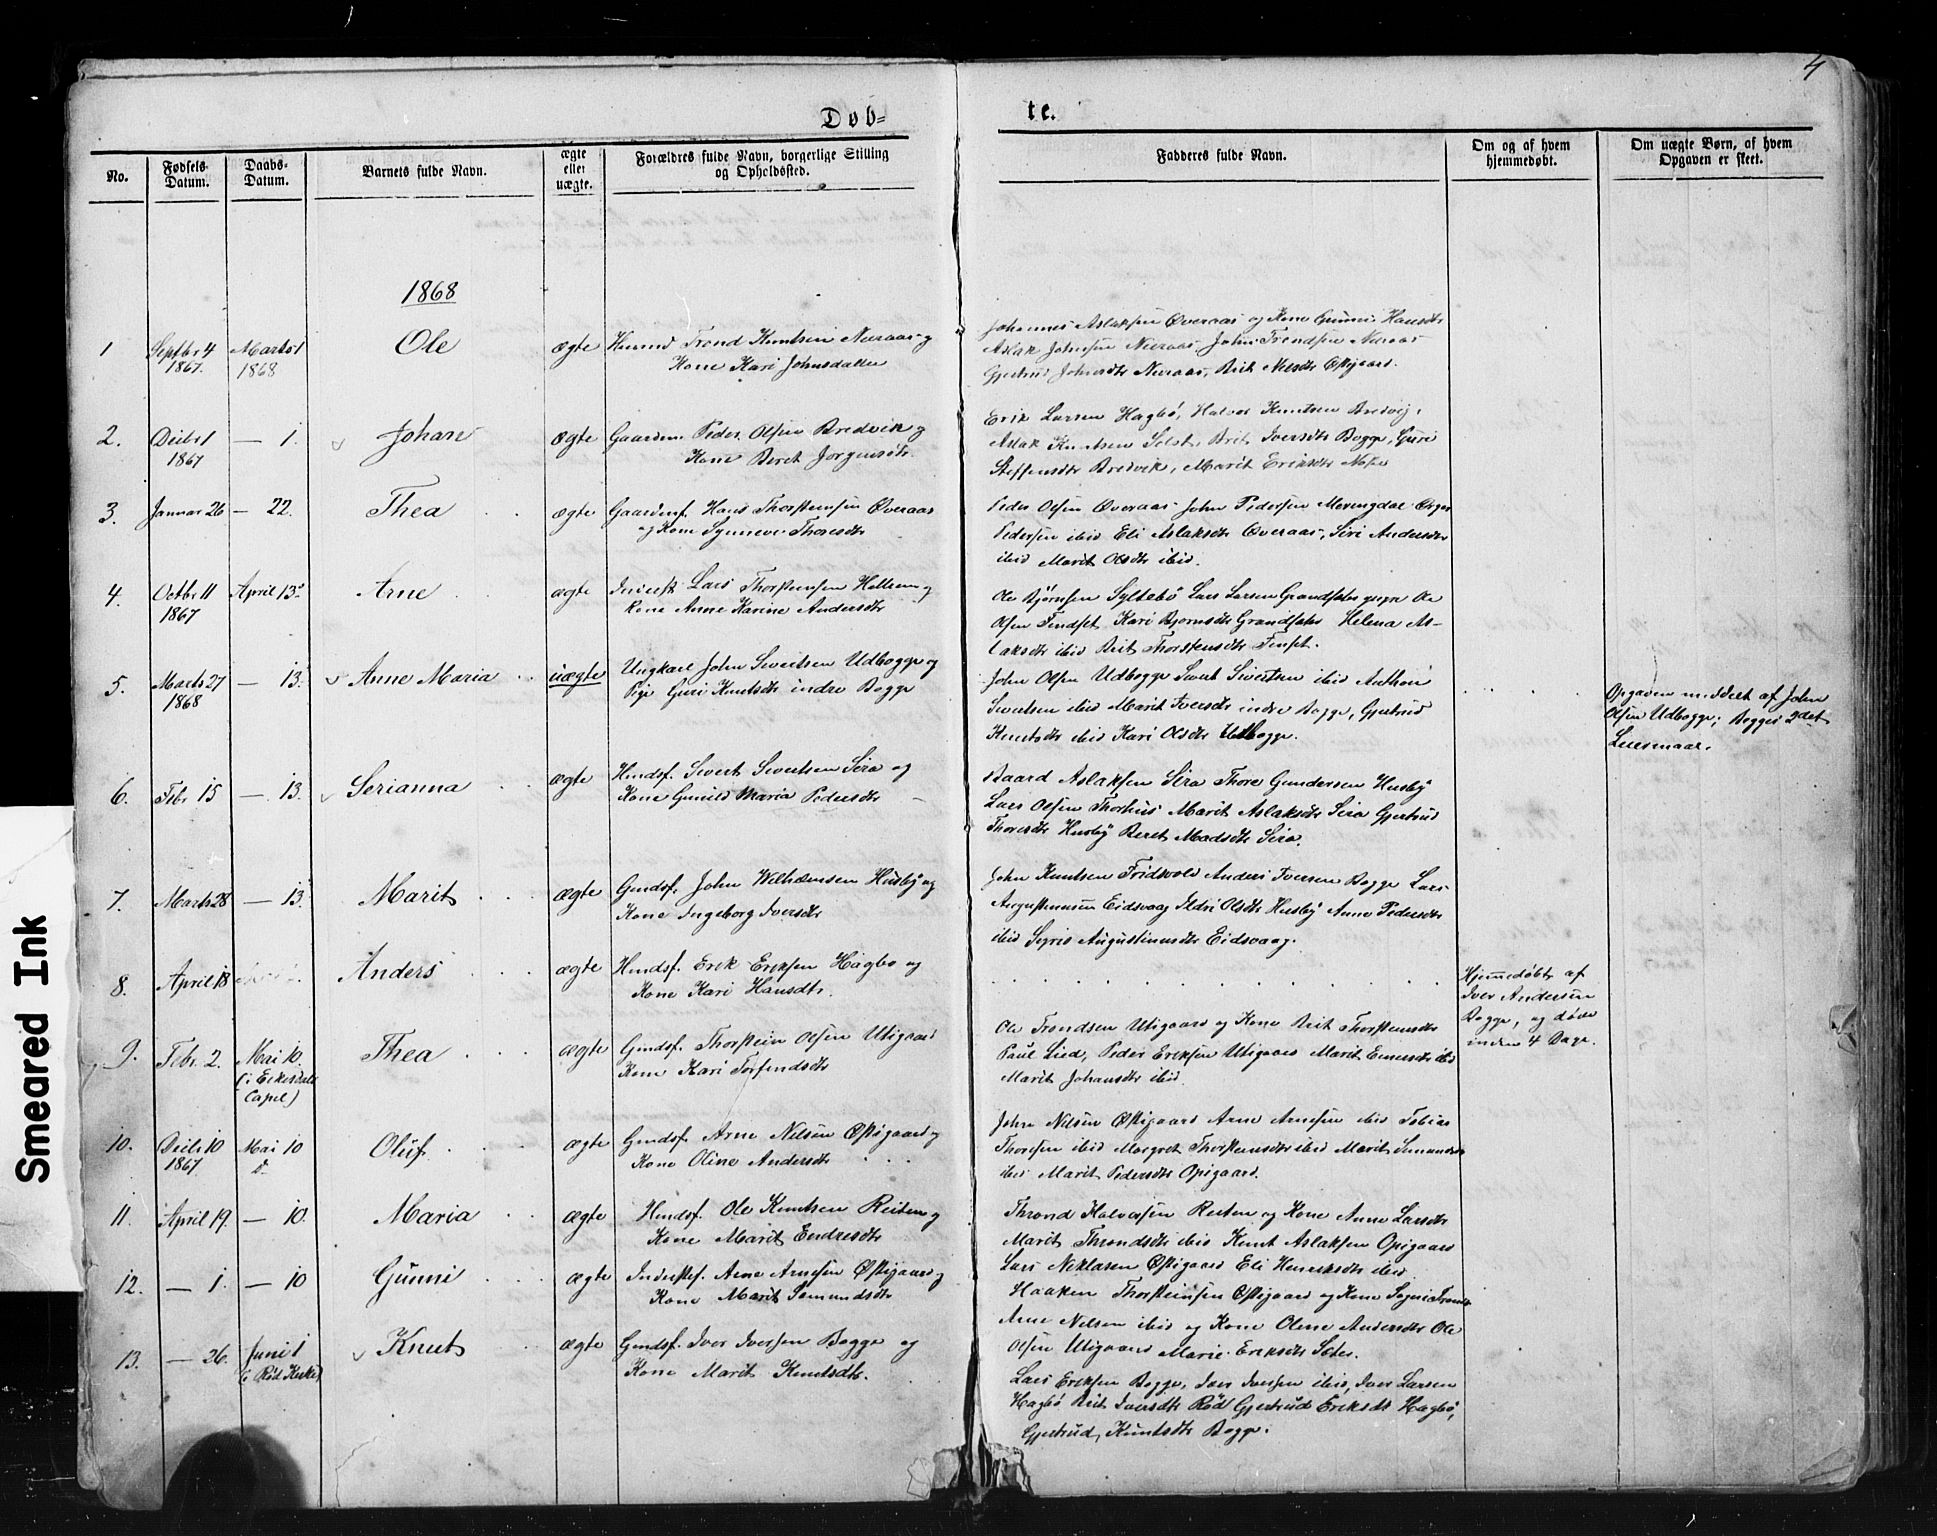 4
Døb=
te.
No.
Fødsels-
Datum.
Daabs-
Datum.
Barnets fulde Navn.
ægte
eller
uægte.
Forældres fulde Navn, borgerlige Stilling
og Opholdssted.
Fadderes fulde Navn.
Om og af hvem
hjemmedøbt.
Om uægte Børn, af hvem
Opgaven er skeet.
1868
1
Septbr 4
1867.
Marts 1
1868
Ole
ægte
Trond Knutsen Neraas og
Kone Kari Johnsdatter
Johannes Aslaksen Øveraas og Kone Gunni Hansdtr
Aslak Johnsen Neraas John Trondsen Neraas
Gjertrud Johnsdtr Neraas, Brit Nilsdtr
2.
Decbr 1
1867
— 1.
Johan
ægte
Gaardm. Peder Olsen Bredvik og
Kone Beret Jørgensdtr.
Erik Larsen Hagbø, Halvor Knutsen Bredvig,
Aslak Knutsen Brit Iversdtr Bogge, Guri
Steffensdtr Bredvik, Marit Eriksdtr
3.
Januar 26
— 22.
Thea
ægte
Hans Thorsteinsen Øveraas
og Kone Synneve Thoresdtr
Peder Olsen Øveraas John Pedersen Merringdal
Pedersen ibid Eli Aslaksdtr Øveraas, Siri Andersdtr
ibid Marit Olsdtr ibid.
4.
Octbr 11
1867
April 13.
Arne
ægte
Inderst Lars Thorsteinsen og
Kone Anne Karine Andersdtr
Ole Bjørnsen Syltebø Lars Larsen Ole
Olsen Kari Bjørnsdtr Helena As-
laksdtr ibid Brit Thorstensdtr
5.
Marts 27
1868
— 13.
Anne Maria
uægte
Ungkarl John Sivertsen Udbogge og
Pige Guri Knutsdtr indre Bogge
John Olsen Udbogge Sivert Sivertsen ibid Anthon
Sivertsen ibid Marit Iversdtr indre Bogge, Gjertrud
Knutsdtr ibid Kari Olsdtr Udbogge.
Opgaven meddelt af John
Olsen Udbogge; Bogges 2det
Leiesmaal.
6.
Febr 15
— 13.
Serianna
ægte
Husmf. Sivert Sivertsen Sira og
Kone Gunild Maria Pedersdtr
Baard Aslaksen Sira Thore Gundersen Husby
Lars Olsen Thorhus Marit Aslaksdtr Sira Gjertrud
Thoresdtr Husby Beret Madsdtr Sira.
7.
Marts 28
— 13.
Marit
ægte
Gmdsf. John Husby og
Kone Ingeborg Iversdtr
John Knutsen Fridsvold Anders Iversen Bogge Lars
Augustinusen Eidsvaag Ildri Olsdtr Husby Anne Pedersdtr
ibid Augustinusdtr Eidsvaag.
8.
April 18
Anders
ægte
Husmf. Erik Eriksen Hagbø og
Kone Kari Hansdtr.
Hjemmedøbt af
Iver Andersen
Bogge, og døde
inden 4 Dage.
9.
Febr. 2.
Mai 10
(i Eikisdals
Capel)
Thea
ægte
Gmdsf. Thorstein Olsen Utigaard
Kone Kari Torfindsdtr
Ole Trondsen Utigaard og Kone Brit Thorsteinsdtr
Paul Lied, Peder Eriksen Utigaard Marit ibid
Marit Johansdtr ibid.
10.
Decbr 10
1867
Mai 10
d.
Oluf
ægte
Gmdsf. Arne Nilsen og
Kone Oline Andersdtr
John Nilsen Arne Arnesen ibid Tobias
Thoresen ibid Margret Thorsteinsdtr ibid Marit
ibid Marit Pedersdtr Opigaard.
11.
April 19.
— 10.
Maria
ægte
Husmf. Ole Knutsen Reiten og
Kone Marit Endresdtr
Thrond Halvorsen Reiten og Kone Anne Larsdtr
Marit Throndsdtr ibid Knut Aslaksen Opigaard
12.
— 1.
— 10
Gunni
ægte
Arne Arnesen og
Kone Marit Samundsdtr
Lars Niklasen Eli Henriksdtr ibid
Haaken Thorsteinsen og Kone
Arne Nilsen ibid og Kone Oline Andersdtr Ole
Olsen Utigaard Marie Eriksdtr
13.
— 26.
Juni 1
(i Rød Kirke)
Knut
ægte
Gmdsf. Iver Iversen Bogge og
Kone Marit Knutsdtr.
Lars Eriksen Bogge, Iver Iversen ibid, Iver Larsen
Hagbø Brit Iversdtr Rød Gjertrud Eriksdtr Hagbø,
Gjertrud Knutsdtr Bogge.
Smeared Ink